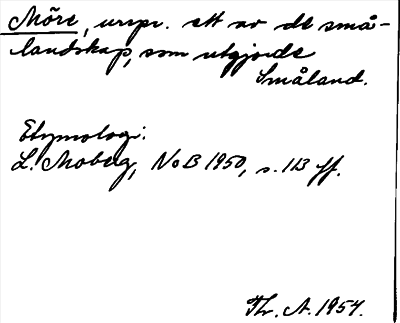 Möre, urspr. ett av de små-
landskap, som utgjorde
Småland.
Etymologi:
L. Moberg, NoB 1950, s. 113 ff.
Th. A. 1954.